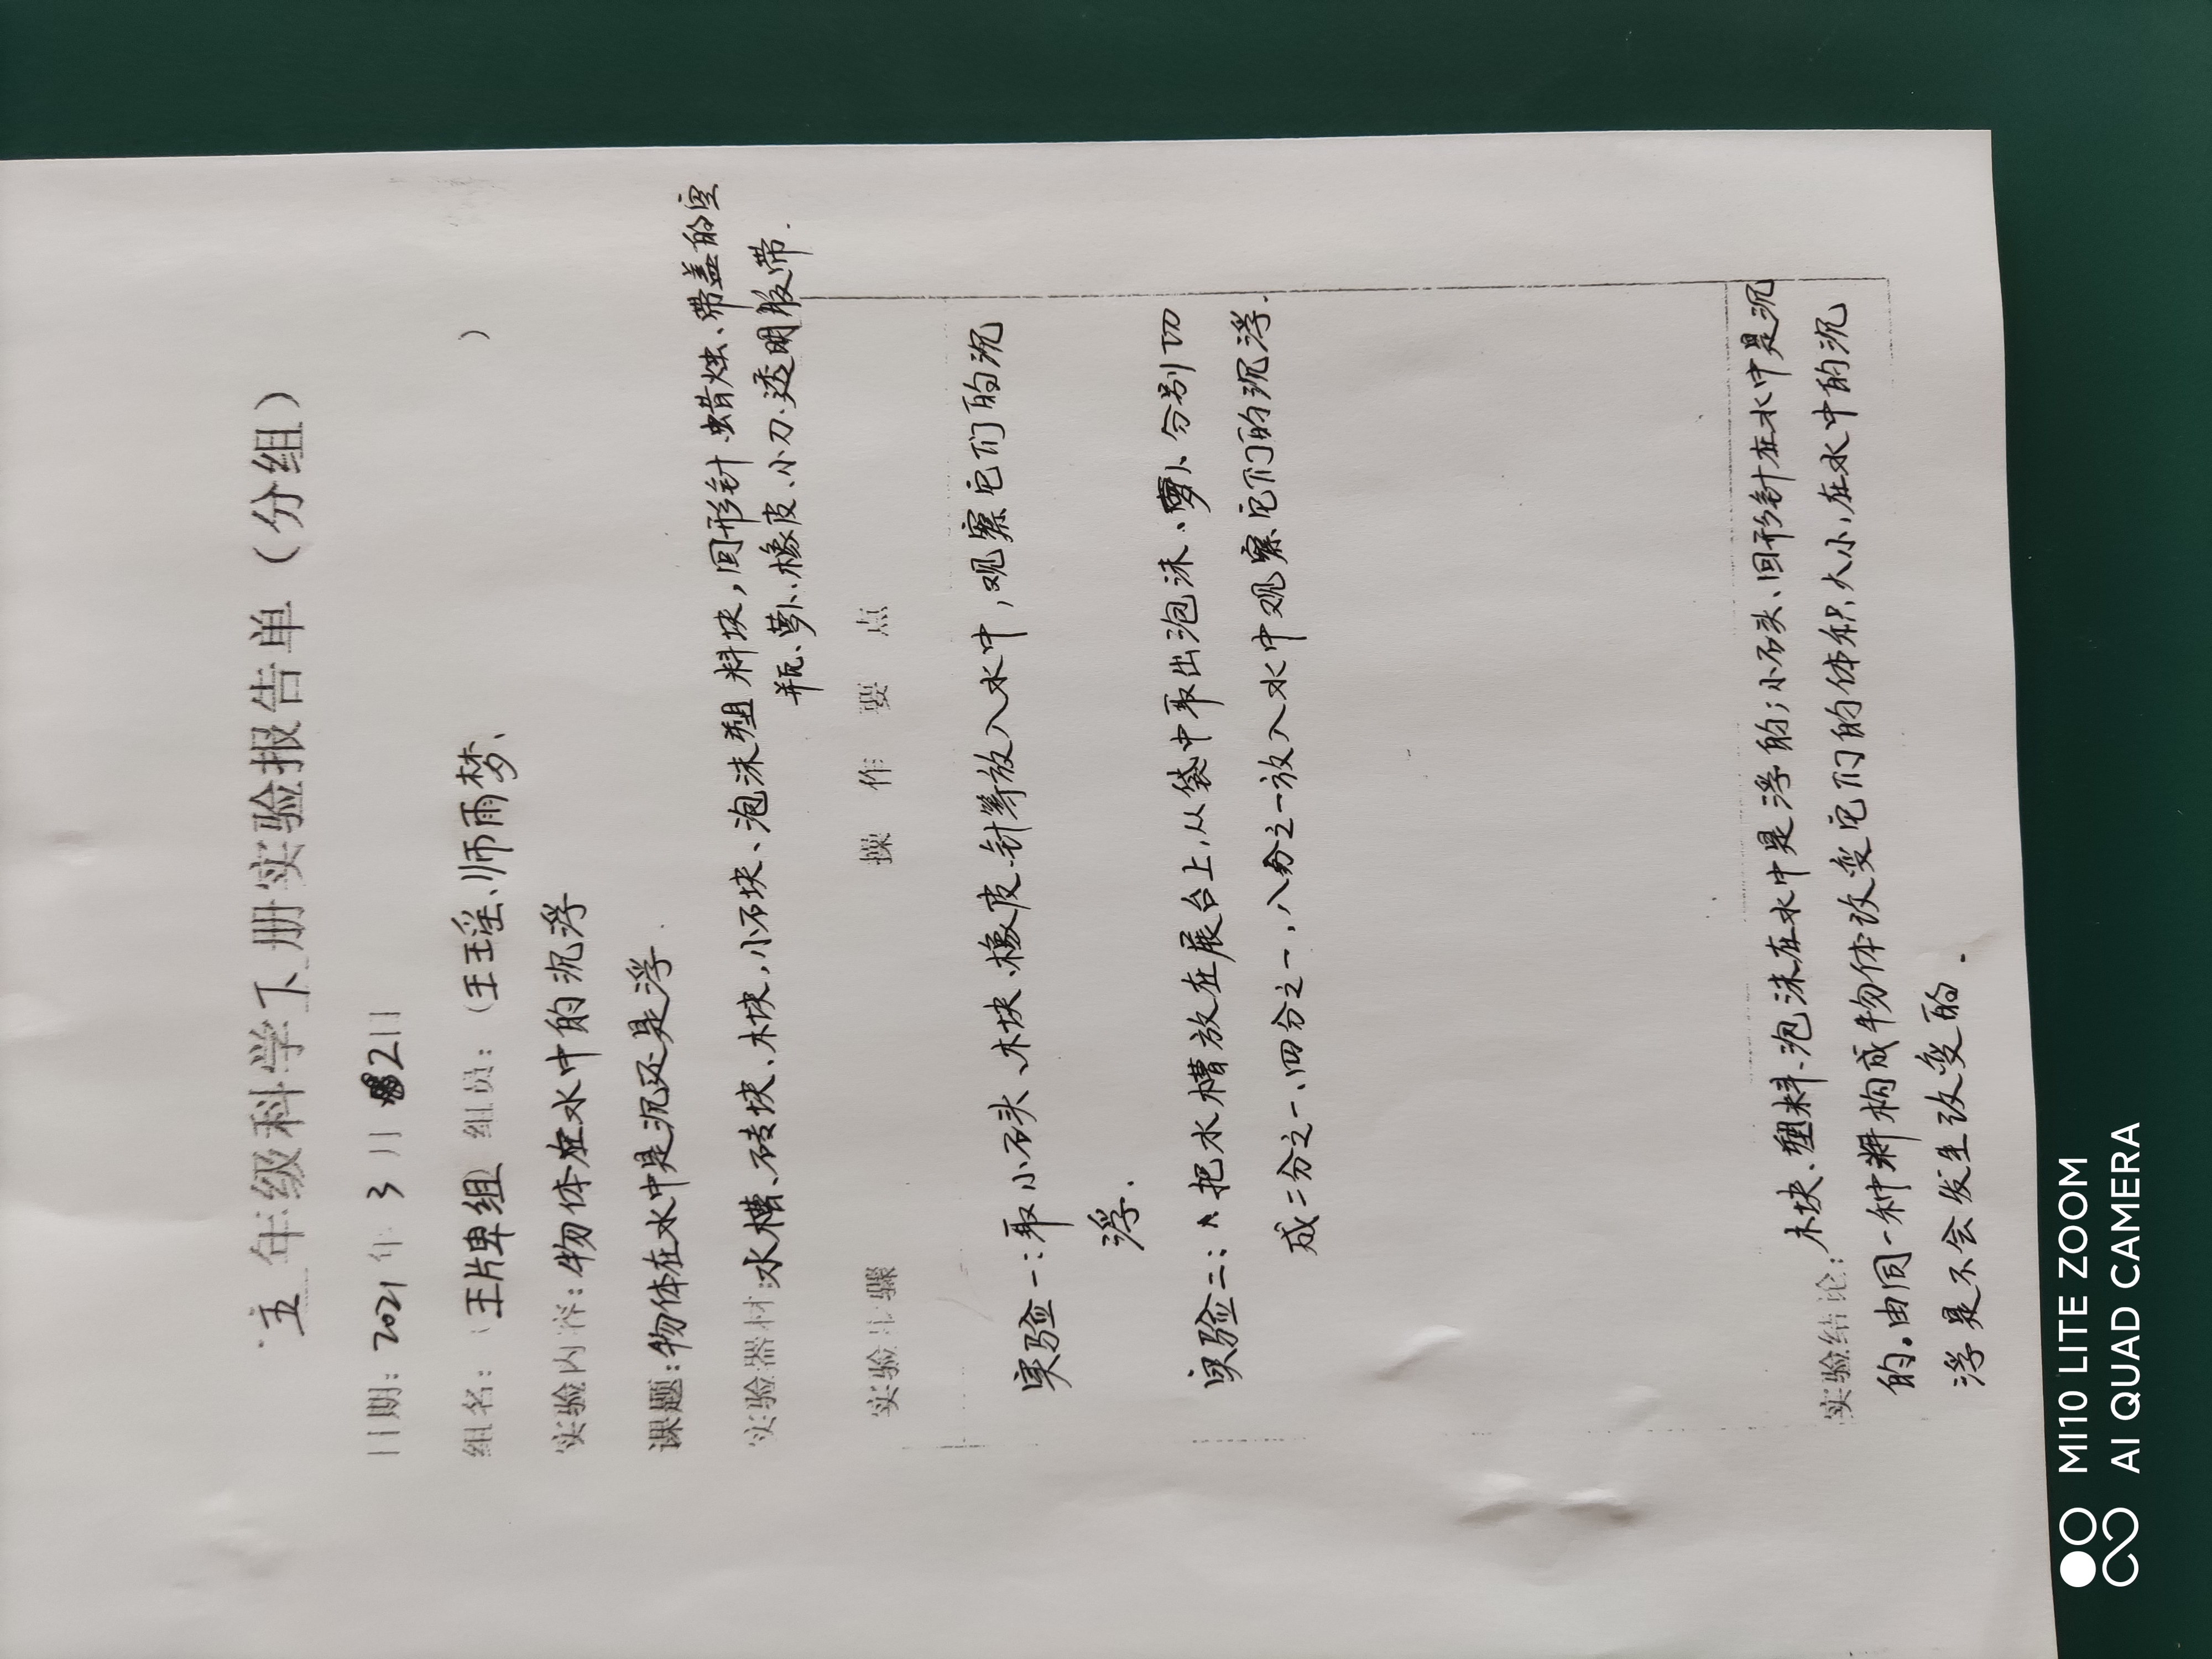 五年级科学下册实验报告单（分组）
日期：2021年3月2日
组名：（王牌组 组员：（王玉瑶、师雨梦、 ）
实验内容：物体在水中的沉浮
课题：物体在水中是沉还是浮.
实验器材：水槽、砖块、木块，小石块、泡沫塑料块，回形针 蜡烛、带盖的空
瓶、萝卜、橡皮、小刀、透明胶带.
实验步骤 操作要点
实验一：取小石头、木块、橡皮、针等放入水中，观察它们的沉
浮.
实验二：把水槽放在展台上，从袋中取出泡沫、萝卜、分别切
成二分之一、四分之一，八分之一放入水中观察它们的沉浮.
实验结论：木块、塑料、泡沫在水中是浮的；小石头、回形针在水中是沉
的。由同一种料构成牛物体改变它们的体积大小，在水中的沉
浮是不会发生改变的.
MI10 LITE ZOOM
AI QUAD CAMERA